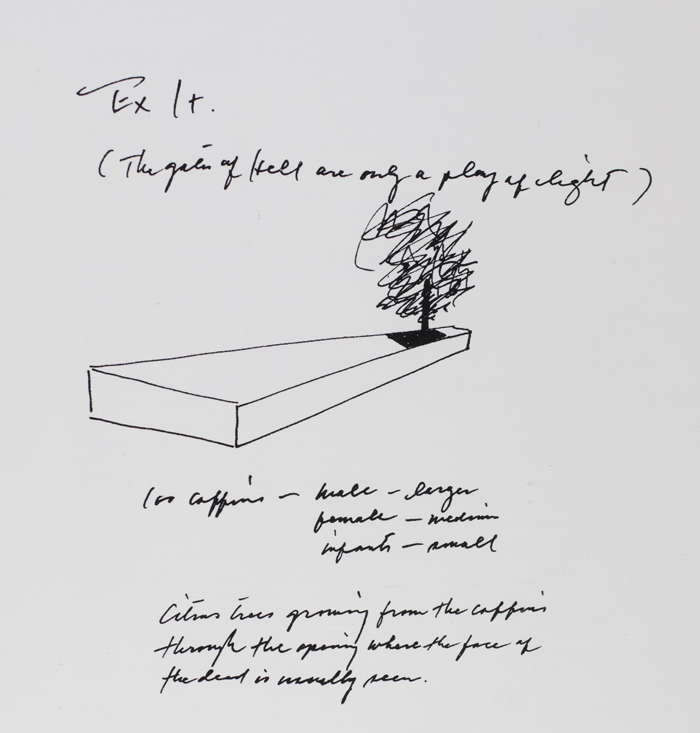 Ex It.
(The gates of Hell are only a play of light)
100 coffins – male – larger
female – medium
infants – small
Citrus trees growing from the coffins
through the opening where the face of
the dead is usually seen.